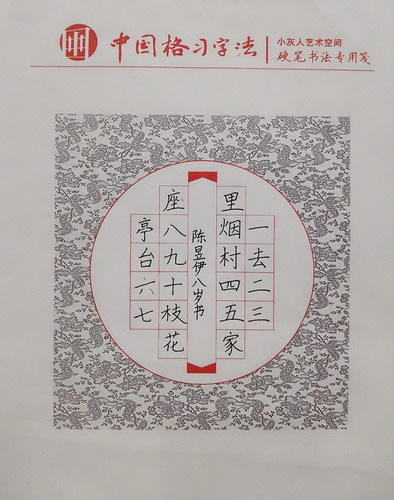 中国格习字法
小灰人艺术空间
硬笔书法专用笺
一去二三
里烟村四五家
亭台六七
座八九十枝花
陈昱伊八岁书